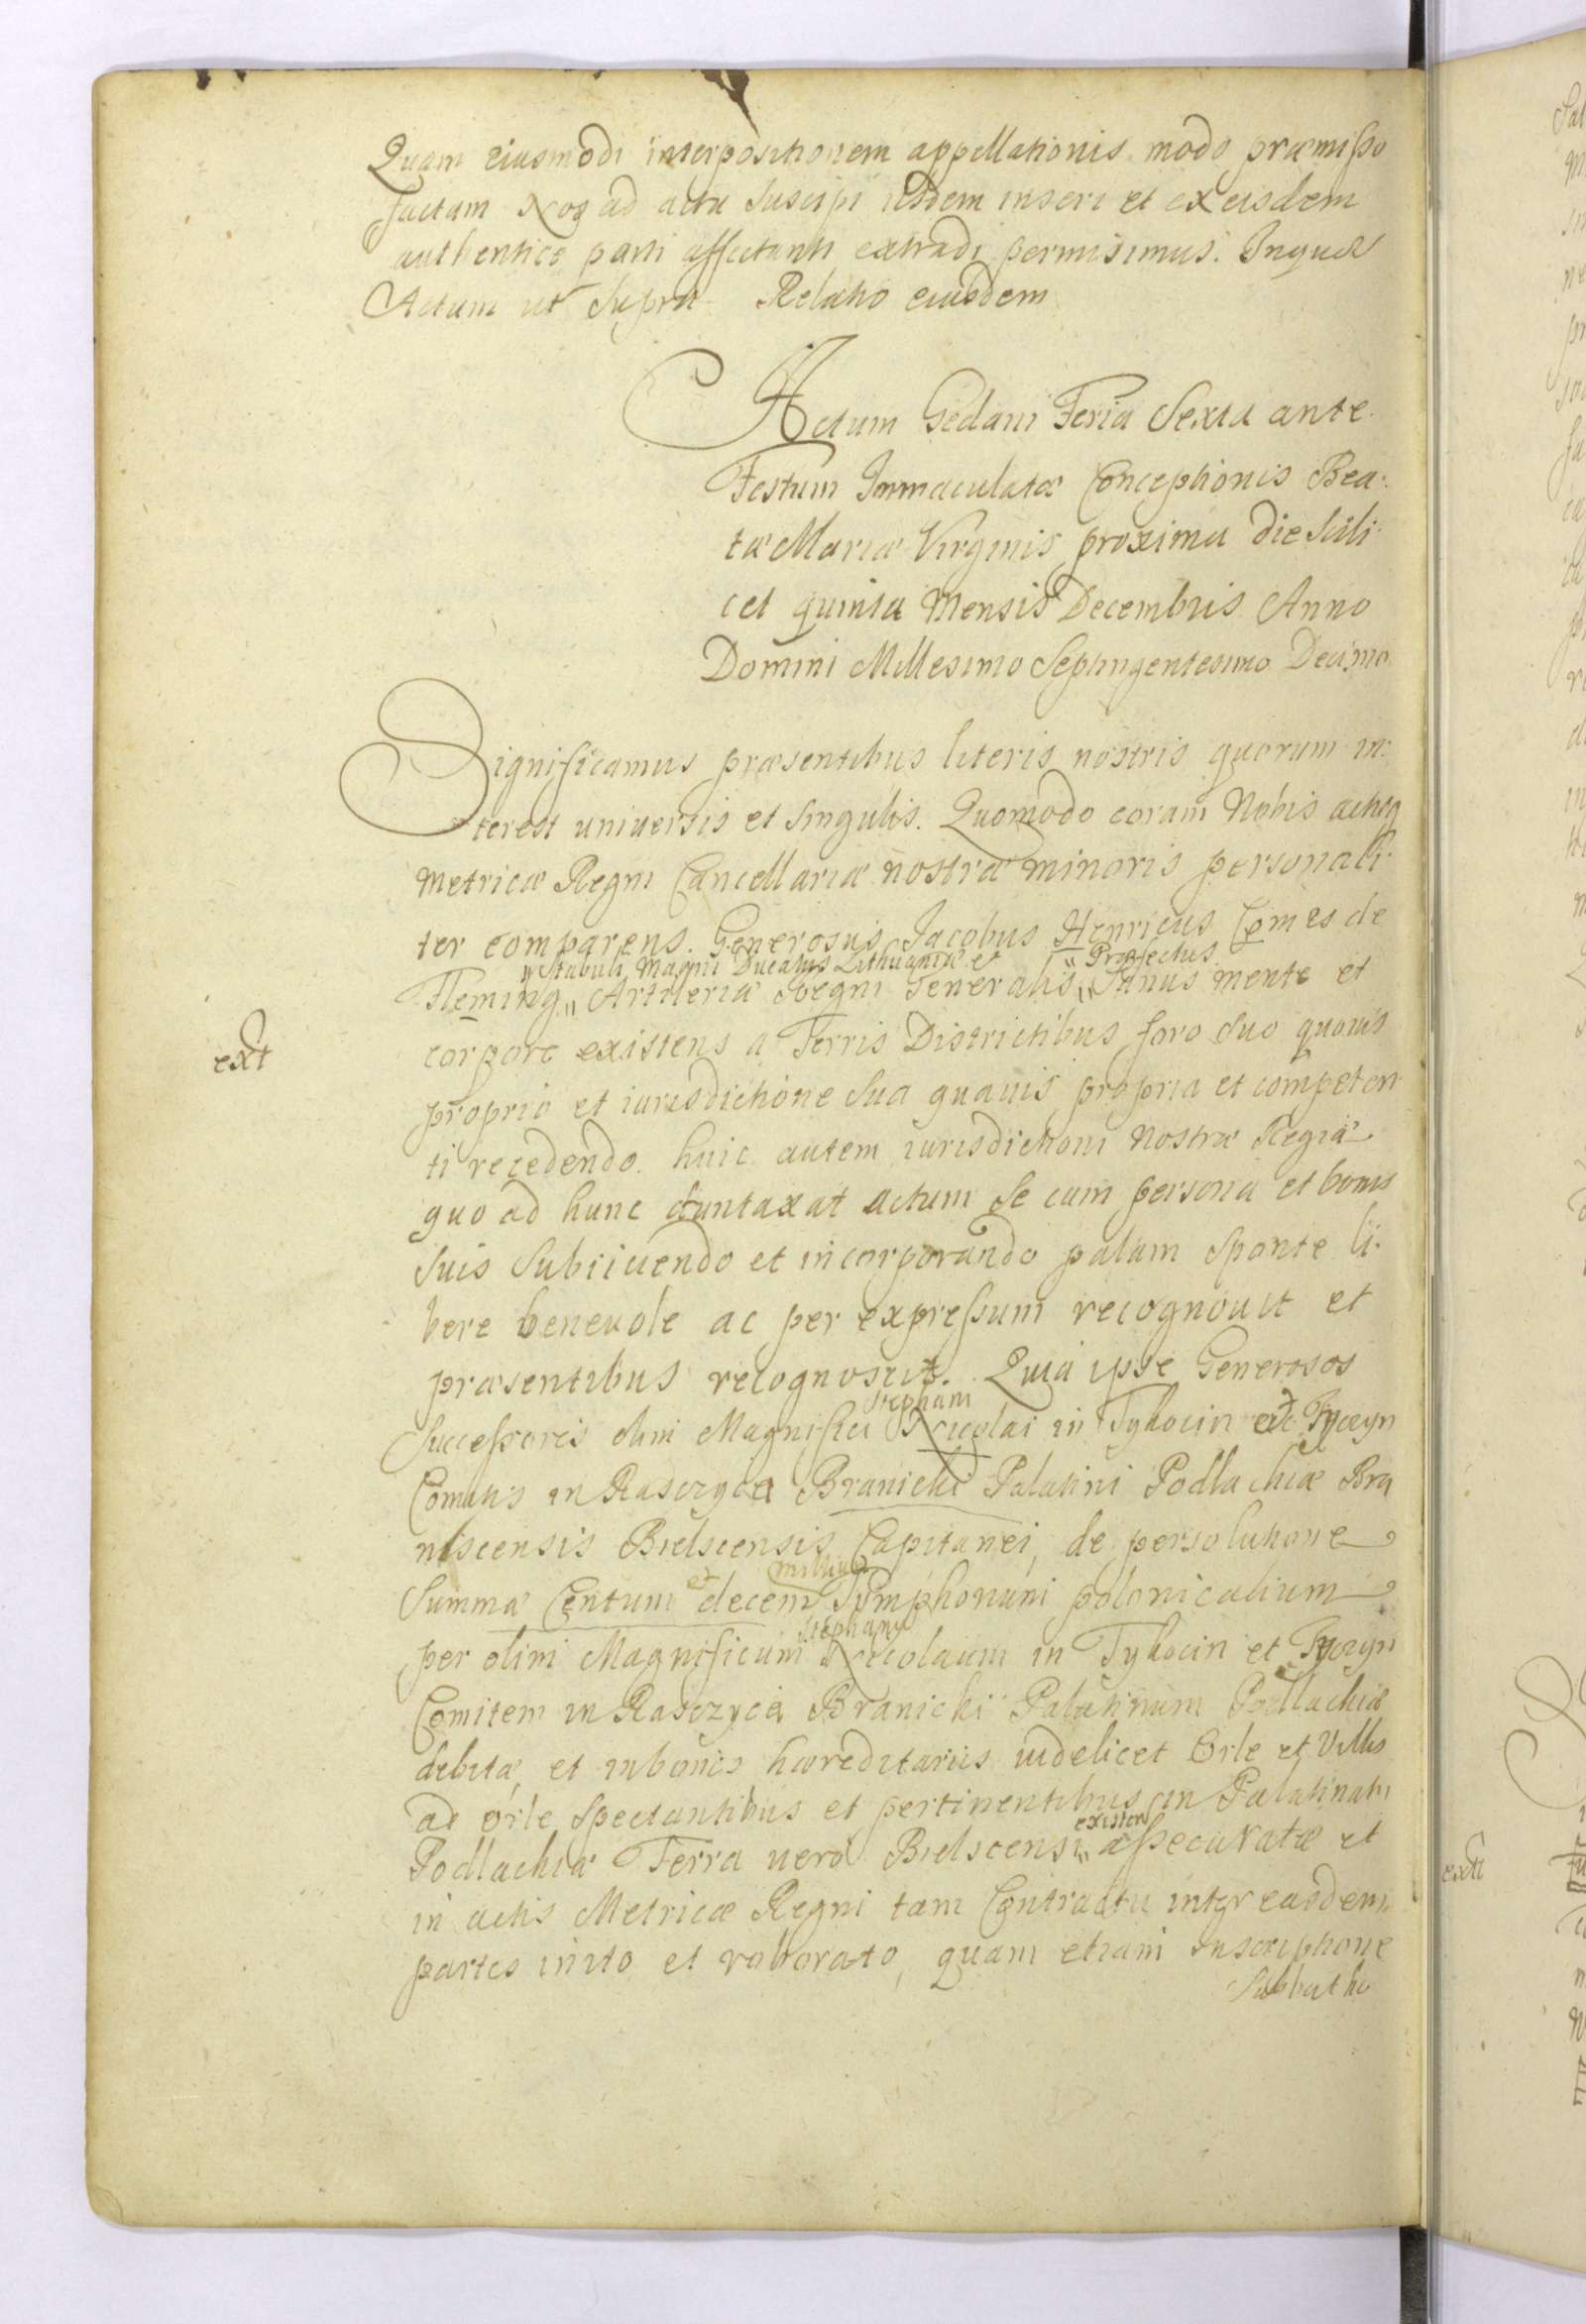 Quam eiusmodi interpositionem appellationis modo præmisso
factam Nos ad acta suscipi iisdem inseri et ex eisdem
authentice parti affectanti extradi permisimus. Inquæ
Actum ut supra Relatio eiusdem
Actum Gedani Feria Sexta ante
Festum Immaculatæ Conceptionis Bea:
tæ Mariæ Virginis proxima die scili
cet quinta Mensis Decembris Anno
Domini Millesimo Septingentesimo Decimo
Significamus præsentibus literis nostris quorum in:
terest universis et singulis. Quomodo coram Nobis actisq
Metricæ Regni Cancellariæ nostræ minoris personali
ter comparens. Generosus Jacobus Henricus Comes de
" Stabuli Magni Ducatus Lithuaniæ et " Præfectus
Fleming " Artileriæ Regni Generalis " Sanus mente et
ext
corpore existens a Terris Districtibus foro suo quovis
proprio et iurisdictione sua quavis propria et competen
ti recedendo. huic autem iurisdictioni Nostræ Regiæ
quo ad hunc duntaxat actum se cum persona et bonis
suis subiiciendo et incorporando palam sponte li:
bere benevole ac per expressum recognovit et
præsentibus recognoscit. Quia ipse Generosos
Stephani
Successores olim Magnifici Nicolai in Tykocin et Tyczyn
Comitis in Rasczyca Branicki Palatini Podlachiæ Bra
nscensis Bielscensis Capitanei, de persolutione
et millium
Summa Centum decem Tymphonum polonicalium
Stephanum
per olim Magnificum Nicolaum in Tykocin et Tyczyn
Comitem in Rasczyca Branicki Palatinum Podlachiæ
debita, et in bonis hæreditariis videlicet Orle et Villis
ad Orle spectantibus et pertinentibus in Palatinatu
existen
Podlachiæ Terra vero Bielscensi " assecuratæ et
in actis Metricæ Regni tam Contractu inter easdem
partes inito et roborato, quam etiam inscriptione
Sabbatho